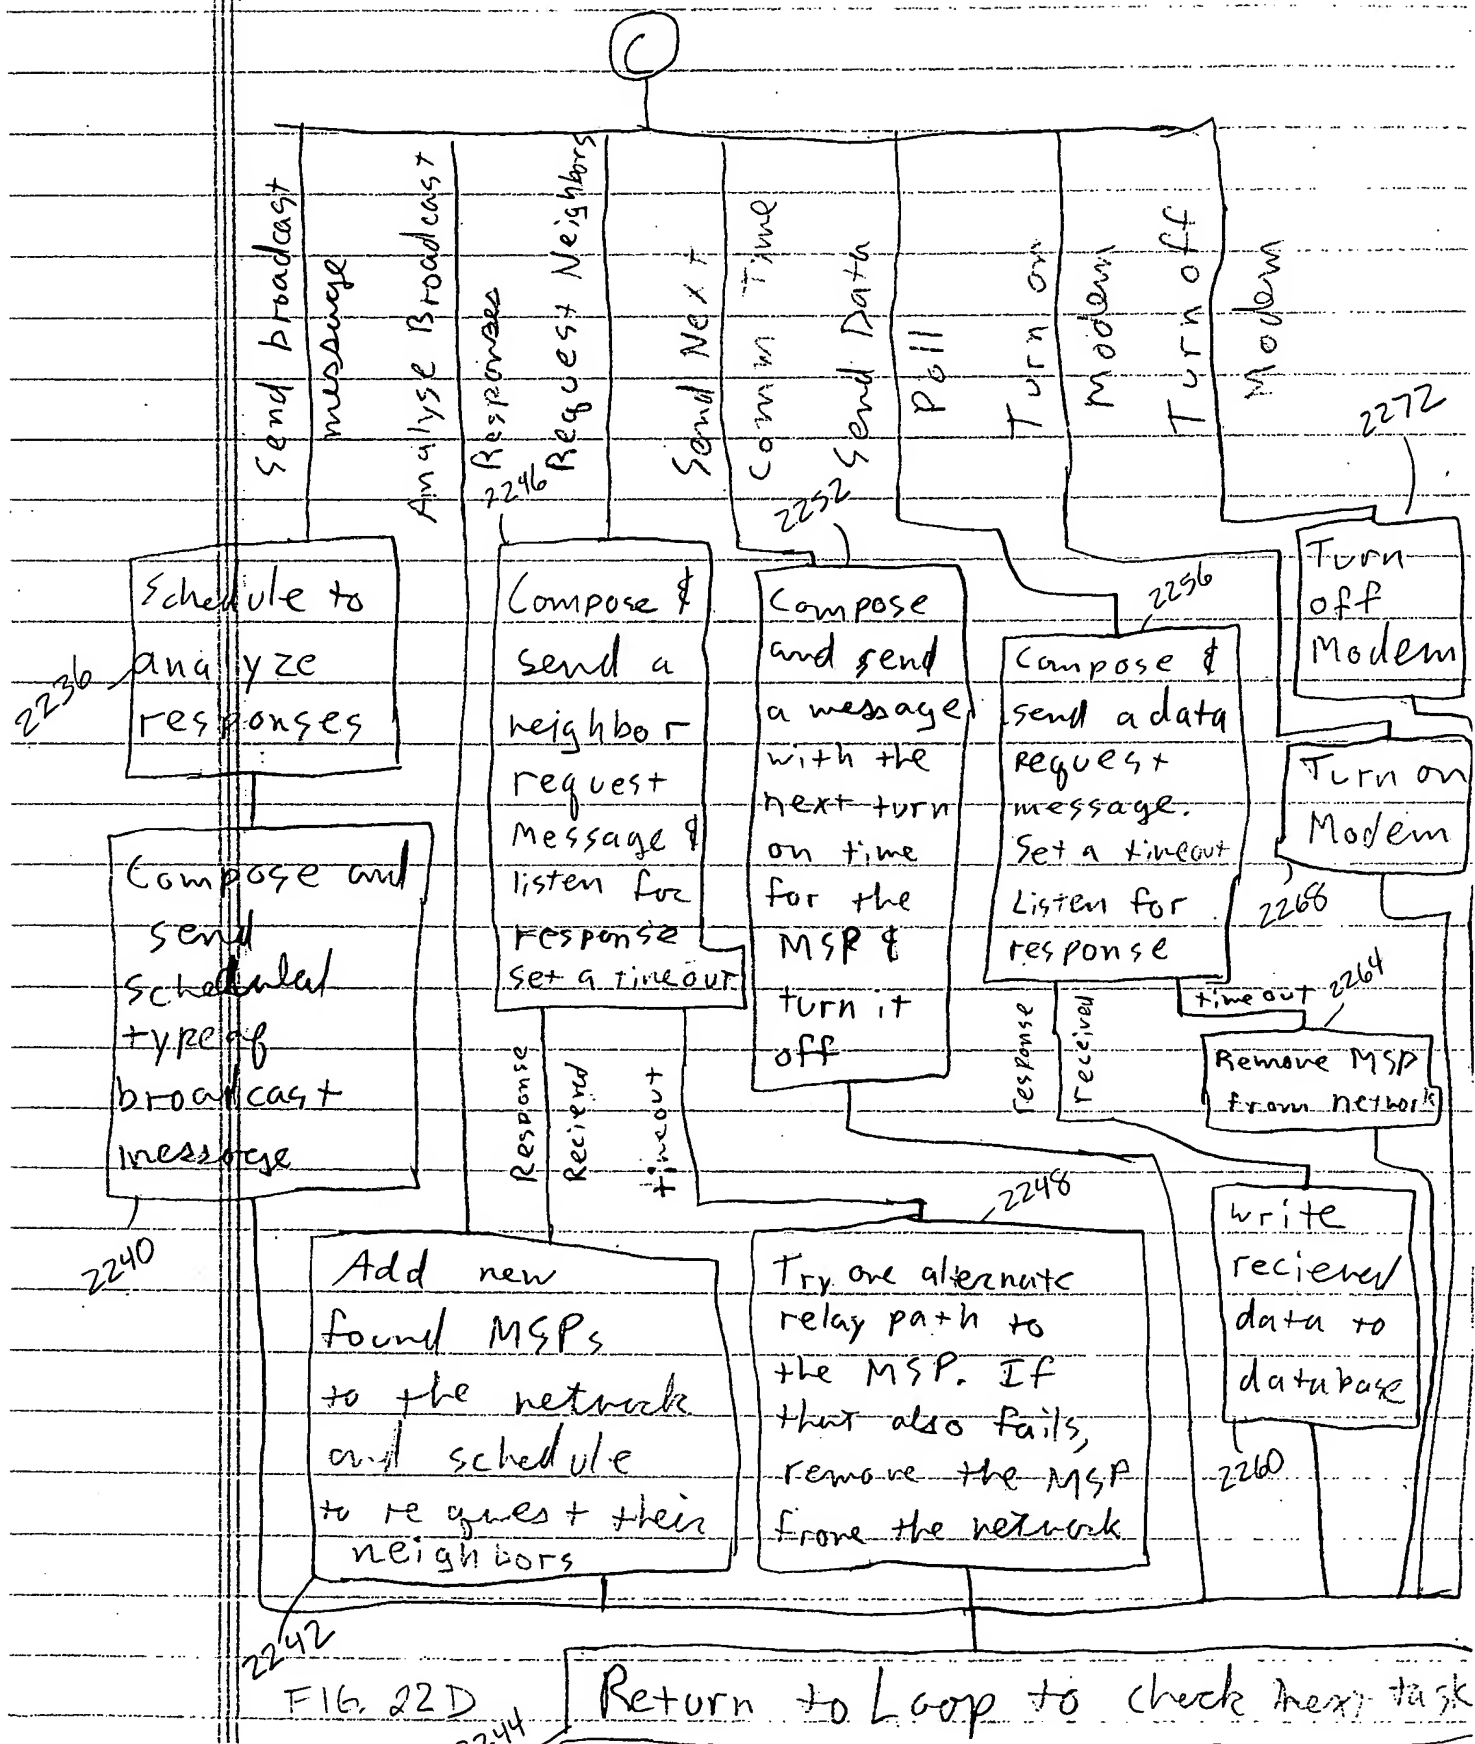 C
Send broadcast
message
Analyse Broadcast
Responses
Request Neighbors
Send Next
Comm Time
Send Data
Poll
Turn on
Modem
Turn off
Modem
2272
2246
2252
2256
Turn
off
Modem
Schedule to
analyze
responses
2236
Compose &
send a
neighbor
request
Message &
listen for
response
set a timeout
Compose
and send
a message
with the
next turn
on time
for the
MSP &
turn it
off
Compose &
send a data
request
message.
Set a timeout
Listen for
response
Turn on
Modem
2268
Compose and
send
scheduled
type of
broadcast
message
2240
Response
Recieved
timeout
response
received
timeout
2264
Remove MSP
from network
2248
Add new
found MSPs
to the network
and schedule
to request their
neighbors
2242
Try one alternate
relay path to
the MSP. If
that also fails,
remove the MSP
frome the network
write
recieved
data to
database
2260
FIG. 22D
2244
Return to Loop to check next task